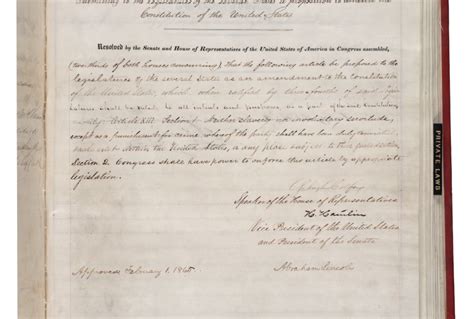 Constitution of the United States
Resolved by the Senate and House of Representatives of the United States of America in Congress assembled,
(two thirds of both houses concurring), that the following article be proposed to the
legislatures of the several States as an amendment to the Constitution
of the United States, which, when ratified by three-fourths of said
shall be valid, to all intents and purposes, as a part of the said Constitution
namely: Article XIII. Section 1. Neither slavery nor involuntary servitude,
except as a punishment for crime whereof the party shall have been duly convicted,
shall exist within the United States, or any place subject to their jurisdiction.
Section 2. Congress shall have power to enforce this article by appropriate
legislation.
Speaker of the House of Representatives
H. Hamlin
Vice President of the United States
and President of the Senate
Approved February 1, 1865.
Abraham Lincoln
PRIVATE LAWS